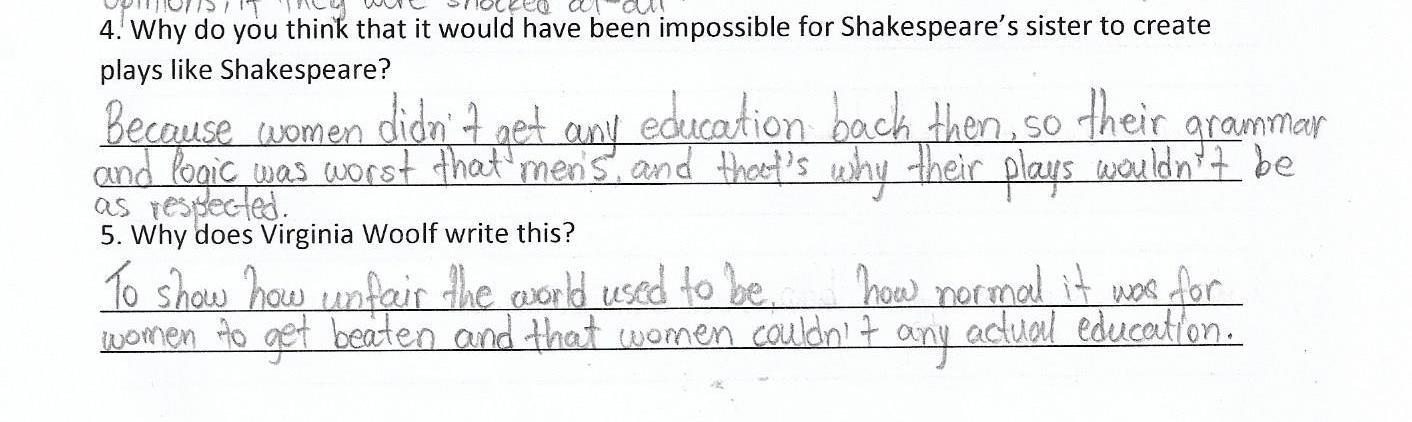 opinions, if they were shocked at all
4. Why do you think that it would have been impossible for Shakespeare's sister to create
plays like Shakespeare?
Because women didn't get any education back then, so their grammar
and logic was worst that men's, and that's why their plays wouldn't be
as respected.
5. Why does Virginia Woolf write this?
To show how unfair the world used to be, how normal it was for
women to get beaten and that women couldn't any actual education.